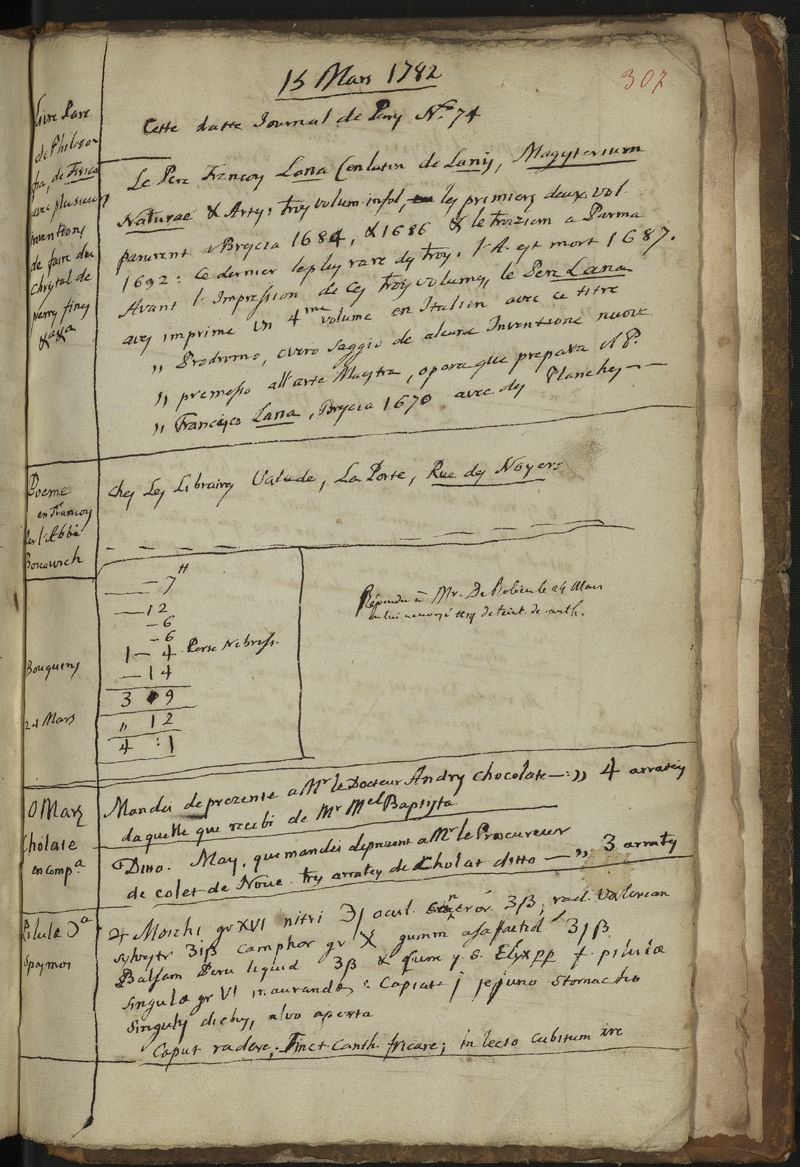 15 Mars 1782
307
Cette datte Journal de Pary No 74
Livre Rare
de Philoso
fia, de Fisica
avec plusieurs
inventions
de faire du
Chrystal de
pierry finey
&a &a
Le Pere Francoy Lana (en latin de Lanis, Magysterium
Naturae & Artys troy volum infol, ley premiers deux vol
parurent a Brycia 1684, & 1686 & le troizieme a Parma
1692: ce dernier le plus rare dy troy. l'A. est mort 1687.
Avant l'Impression de cey troy volumy, le Pere Lana
avey imprime un 4me volume en Italien avec ce titre
" Prodromo, overo saggio de alcune Inventione nuove
" premesso all'arte Maystra, opora que prepava il P.
" Francesco Lana, Brycia 1670 avec dey Planchey
Poeme
en Francoy
par l'Abbé
Boscowich
chey Ley Librairy Valade, La Porte, Rue dey Noyers
— 7 tt
— 12
— 6
— 6
1 — 4
— 14
3 9
" 12
4 : 1
Bouquins
24 Mars
Répondu à Mr. De le 24 Mars
de teint. de canth.
O Marz
Cholate
en compa
Mandei deprezente a Mr le Docteur Andry Chocolate — : " 4 arratey
daquelle que recebi de Mr Mel Baptysta
Ditto. May, que mandei deprezent a Mr le Procureur
de colet de Noue trey arratey de Cholat ditto — " 3 arratey
Pilulæ Da
Spaymos
♃ Moschi gr XVI nitri ℈j ocul. ʒß, rad. Valerian
sylvystr ʒiß camphor gr X gumm asaffætid ʒjß
Balsam Peru liquid ʒß & cum q. s. Elyx pp f. pilulæ
singulæ gr VI inaurandæ: Capiat j jejuno stomacho
singuly diebus, alvo aperta
Caput radere; Tinct. Canth. fricare; in lecto cubitum ire